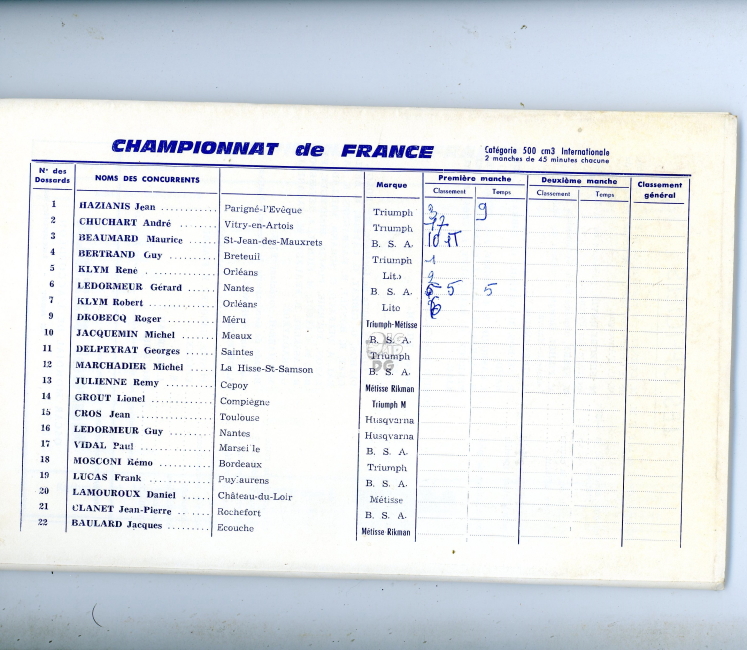 CHAMPIONNAT de FRANCE
Catégorie 500 cm3 Internationale
2 manches de 45 minutes chacune
N° des Dossards NOMS DES CONCURRENTS Marque Première manche Deuxième manche Classement général
Classement Temps Classement Temps
1 HAZIANIS Jean Parigné-l'Evêque Triumph 3 9
2 CHUCHART André Vitry-en-Artois Triumph 17
3 BEAUMARD Maurice St-Jean-des-Mauxrets B. S. A. 10
4 BERTRAND Guy Breteuil Triumph 1
5 KLYM René Orléans Lito 2
6 LEDORMEUR Gérard Nantes B. S. A. 5 5
7 KLYM Robert Orléans Lito 6
9 DROBECQ Roger Méru Triumph-Métisse
10 JACQUEMIN Michel Meaux B. S. A.
11 DELPEYRAT Georges Saintes Triumph
12 MARCHADIER Michel La Hisse-St-Samson B. S. A.
13 JULIENNE Remy Cepoy Métisse Rikman
14 GROUT Lionel Compiègne Triumph M
15 CROS Jean Toulouse Husqvarna
16 LEDORMEUR Guy Nantes Husqvarna
17 VIDAL Paul Marseille B. S. A.
18 MOSCONI Rémo Bordeaux Triumph
19 LUCAS Frank Puylaurens B. S. A.
20 LAMOUROUX Daniel Château-du-Loir Métisse
21 CLANET Jean-Pierre Rochefort B. S. A.
22 BAULARD Jacques Ecouche Métisse Rikman